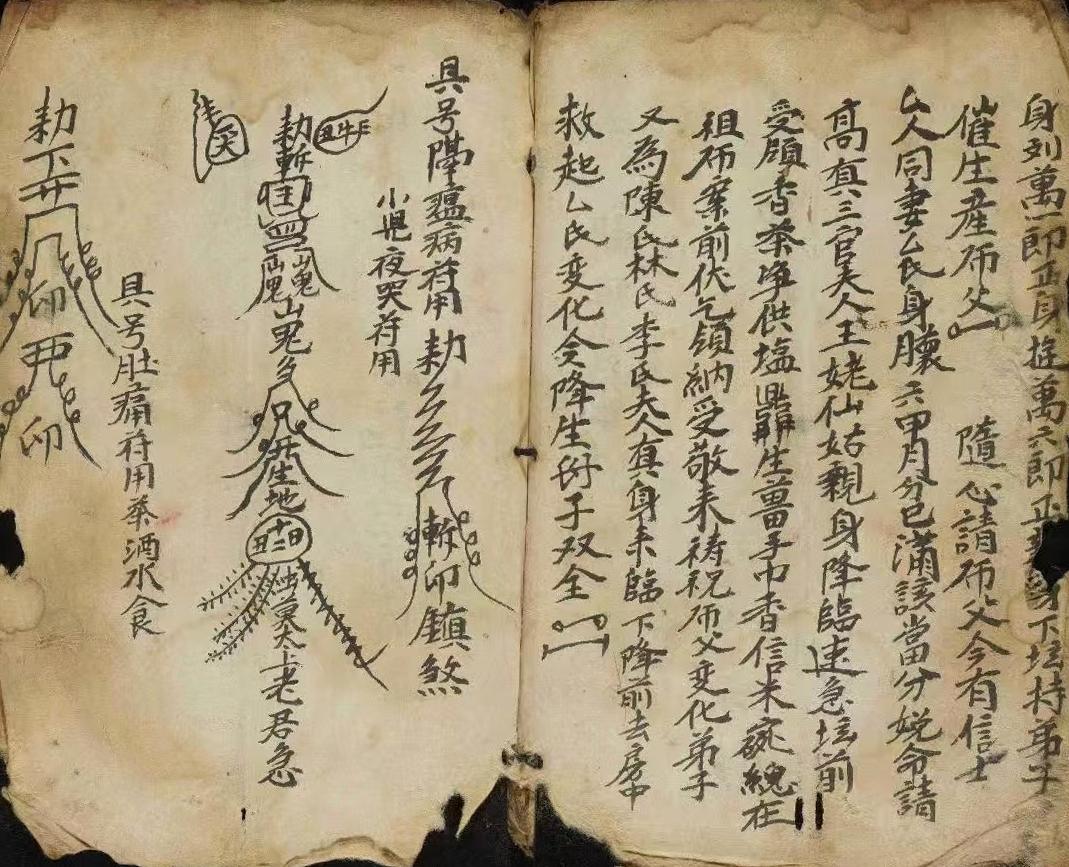 身列萬一郎正身旋萬六郎正身下坛持弟子
催生産师父 隨心請师父今有信士
厶人同妻厶氏身懷六甲月分已滿該當田分娩命請
高真三官夫人王姥仙姑親身降臨速急坛前
受領香茶净供塩生薑子巾香信米碗總在
祖师案前伏乞領納受敬来祷祝师父变化弟子
又為陳氏林氏李氏夫人真身来臨下降前去房中
救起厶氏变化令降生衍子双全
具号隔瘟病符用
勅斬印鎮煞
小児夜哭符用
勅斬山鬼
太上老君急
具号肚痛符用奉酒水食
勅下
印
印